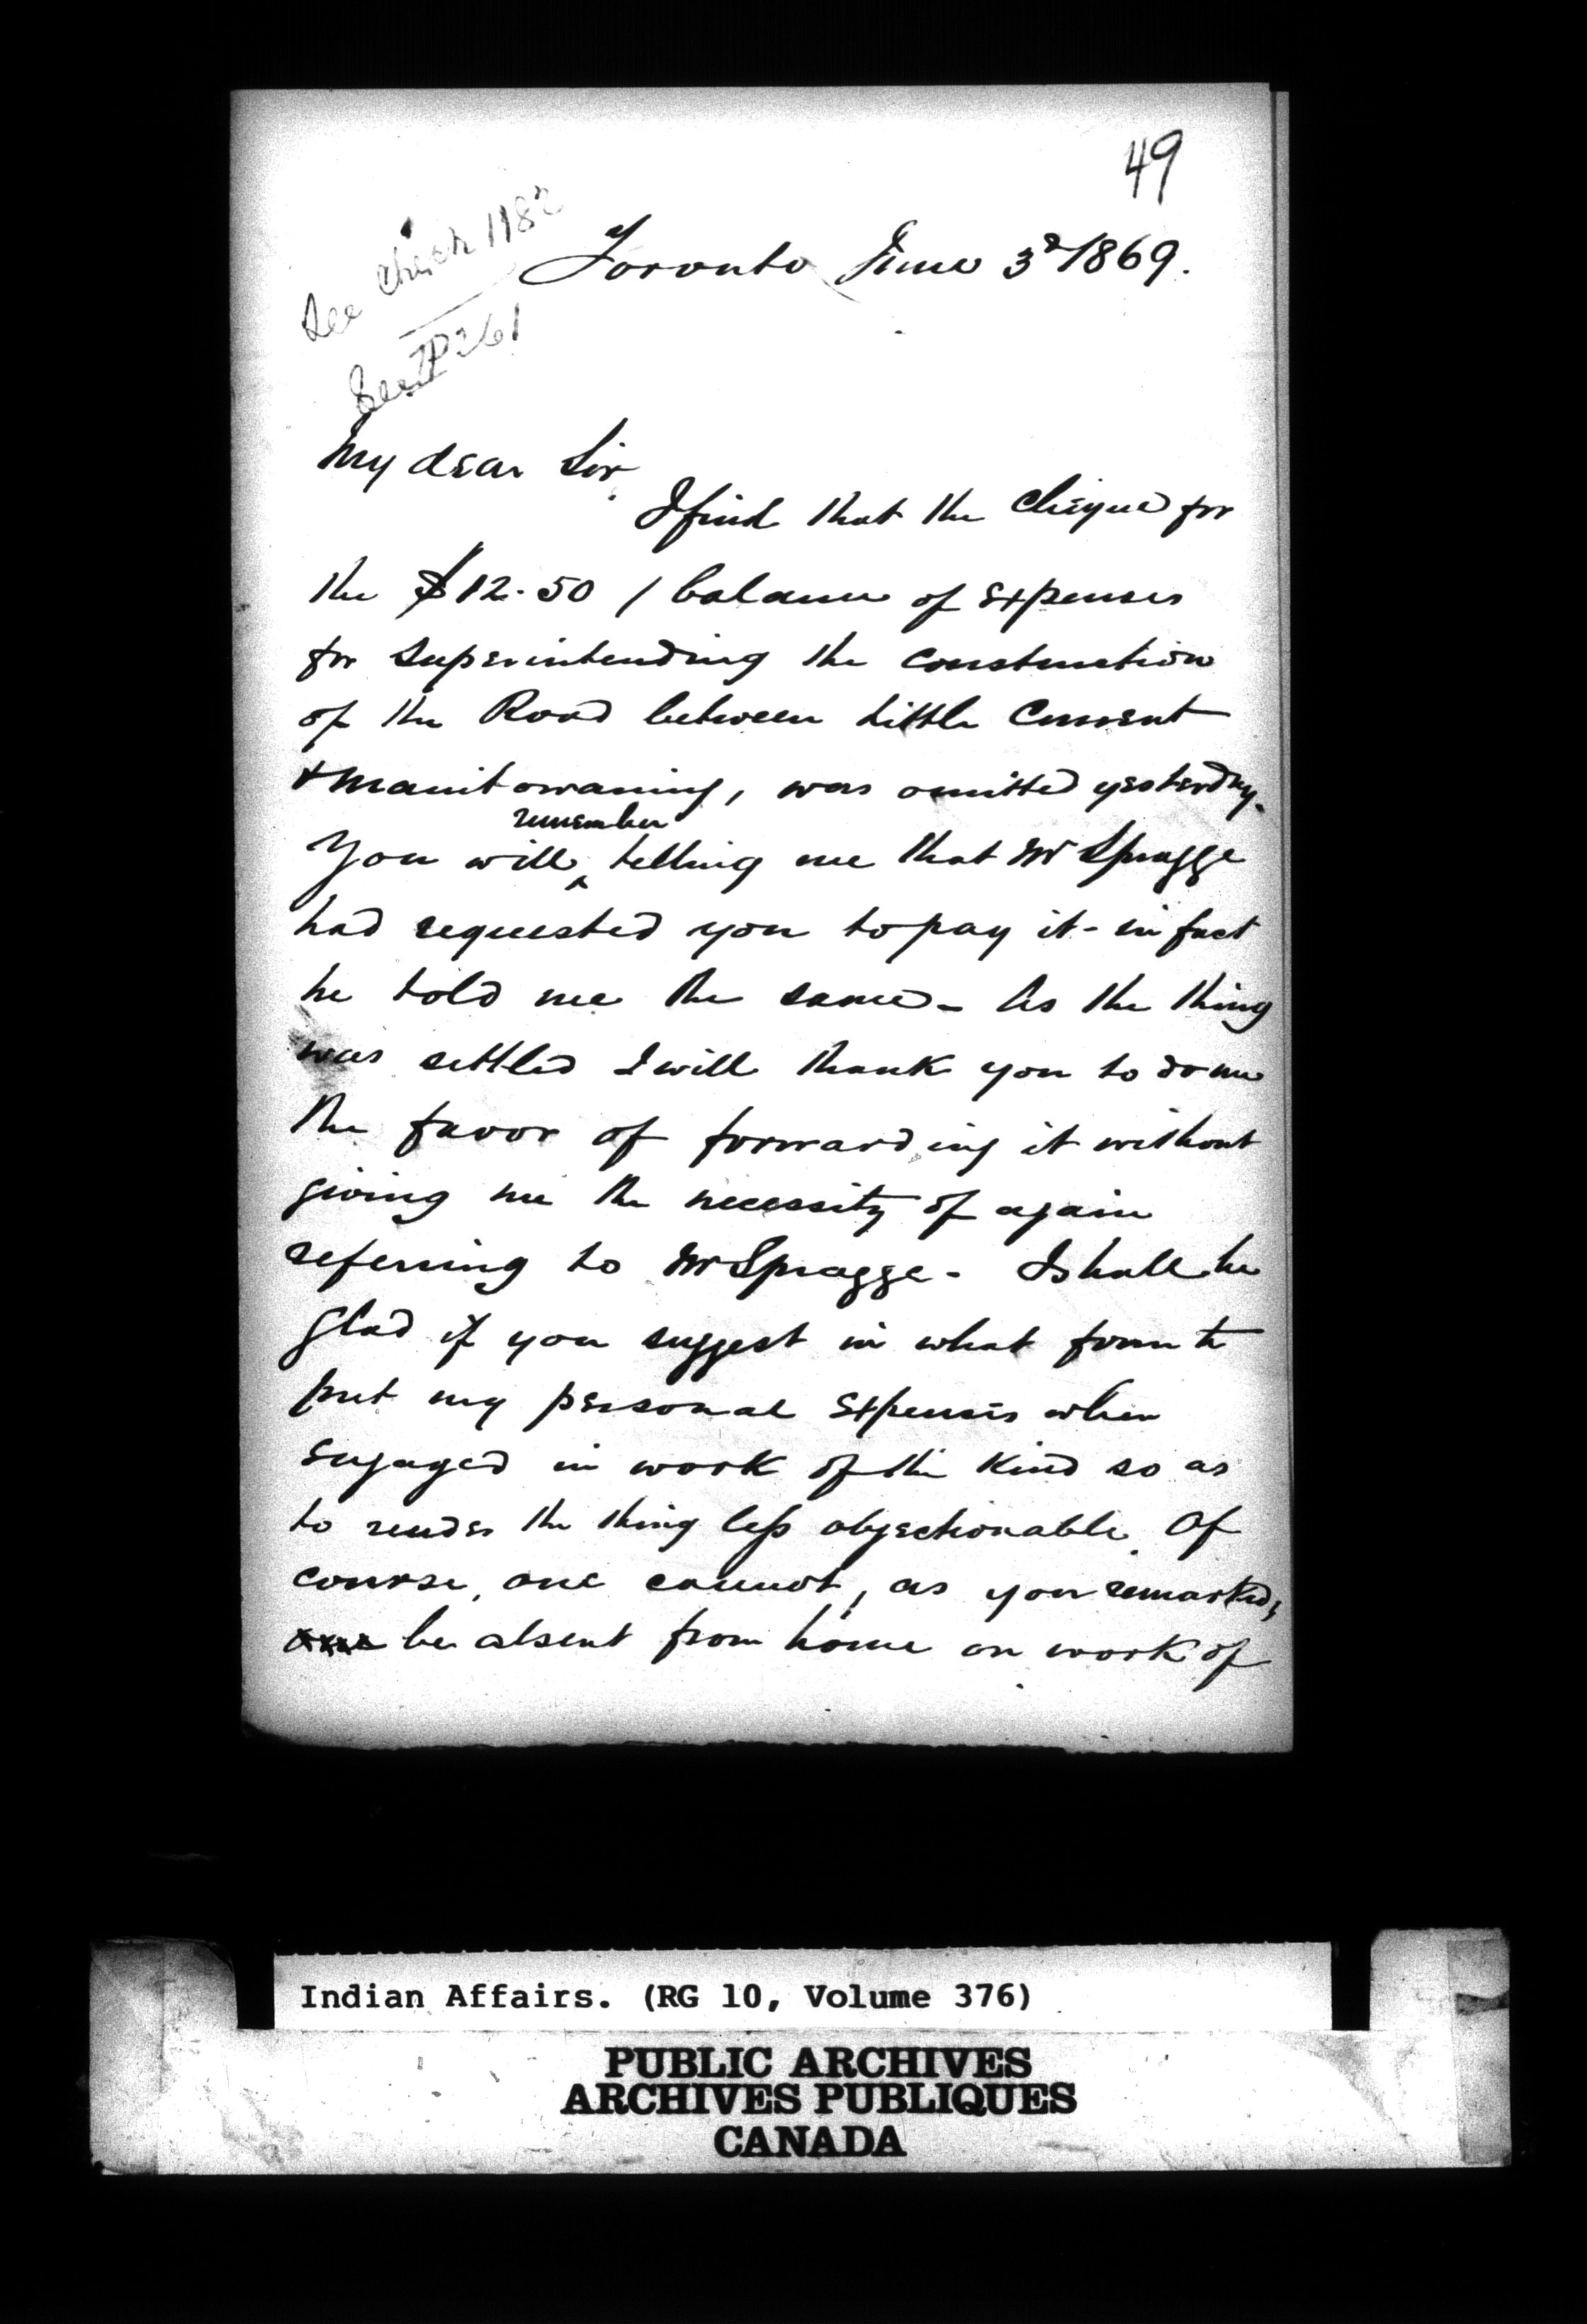 49
See Check 1182
Toronto June 3d 1869.
P 261
My dear Sir,
I find that the Cheque for
the $12.50 / balance of expenses
for superintending the construction
of the Road between Little Current
& Manitowaning, was omitted yesterday.
remember
You will ^ telling me that Mr Spragge
had requested you to pay it - in fact
he told me the same - As the thing
was settled I will thank you to do me
the favor of forwarding it without
giving me the necessity of again
referring to Mr Spragge - I shall be
glad if you suggest in what form to
put my personal expenses when
engaged in work of the kind so as
to render the thing less objectionable. Of
course, one cannot, as you remarked,
be absent from home on work of
Indian Affairs. (RG 10, Volume 376)
PUBLIC ARCHIVES
ARCHIVES PUBLIQUES
CANADA